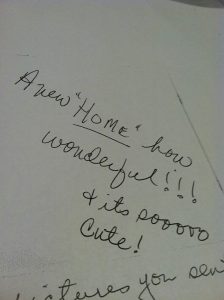 A new "HOME" how
wonderful!!!
& its sooooo
Cute!
pictures you sen